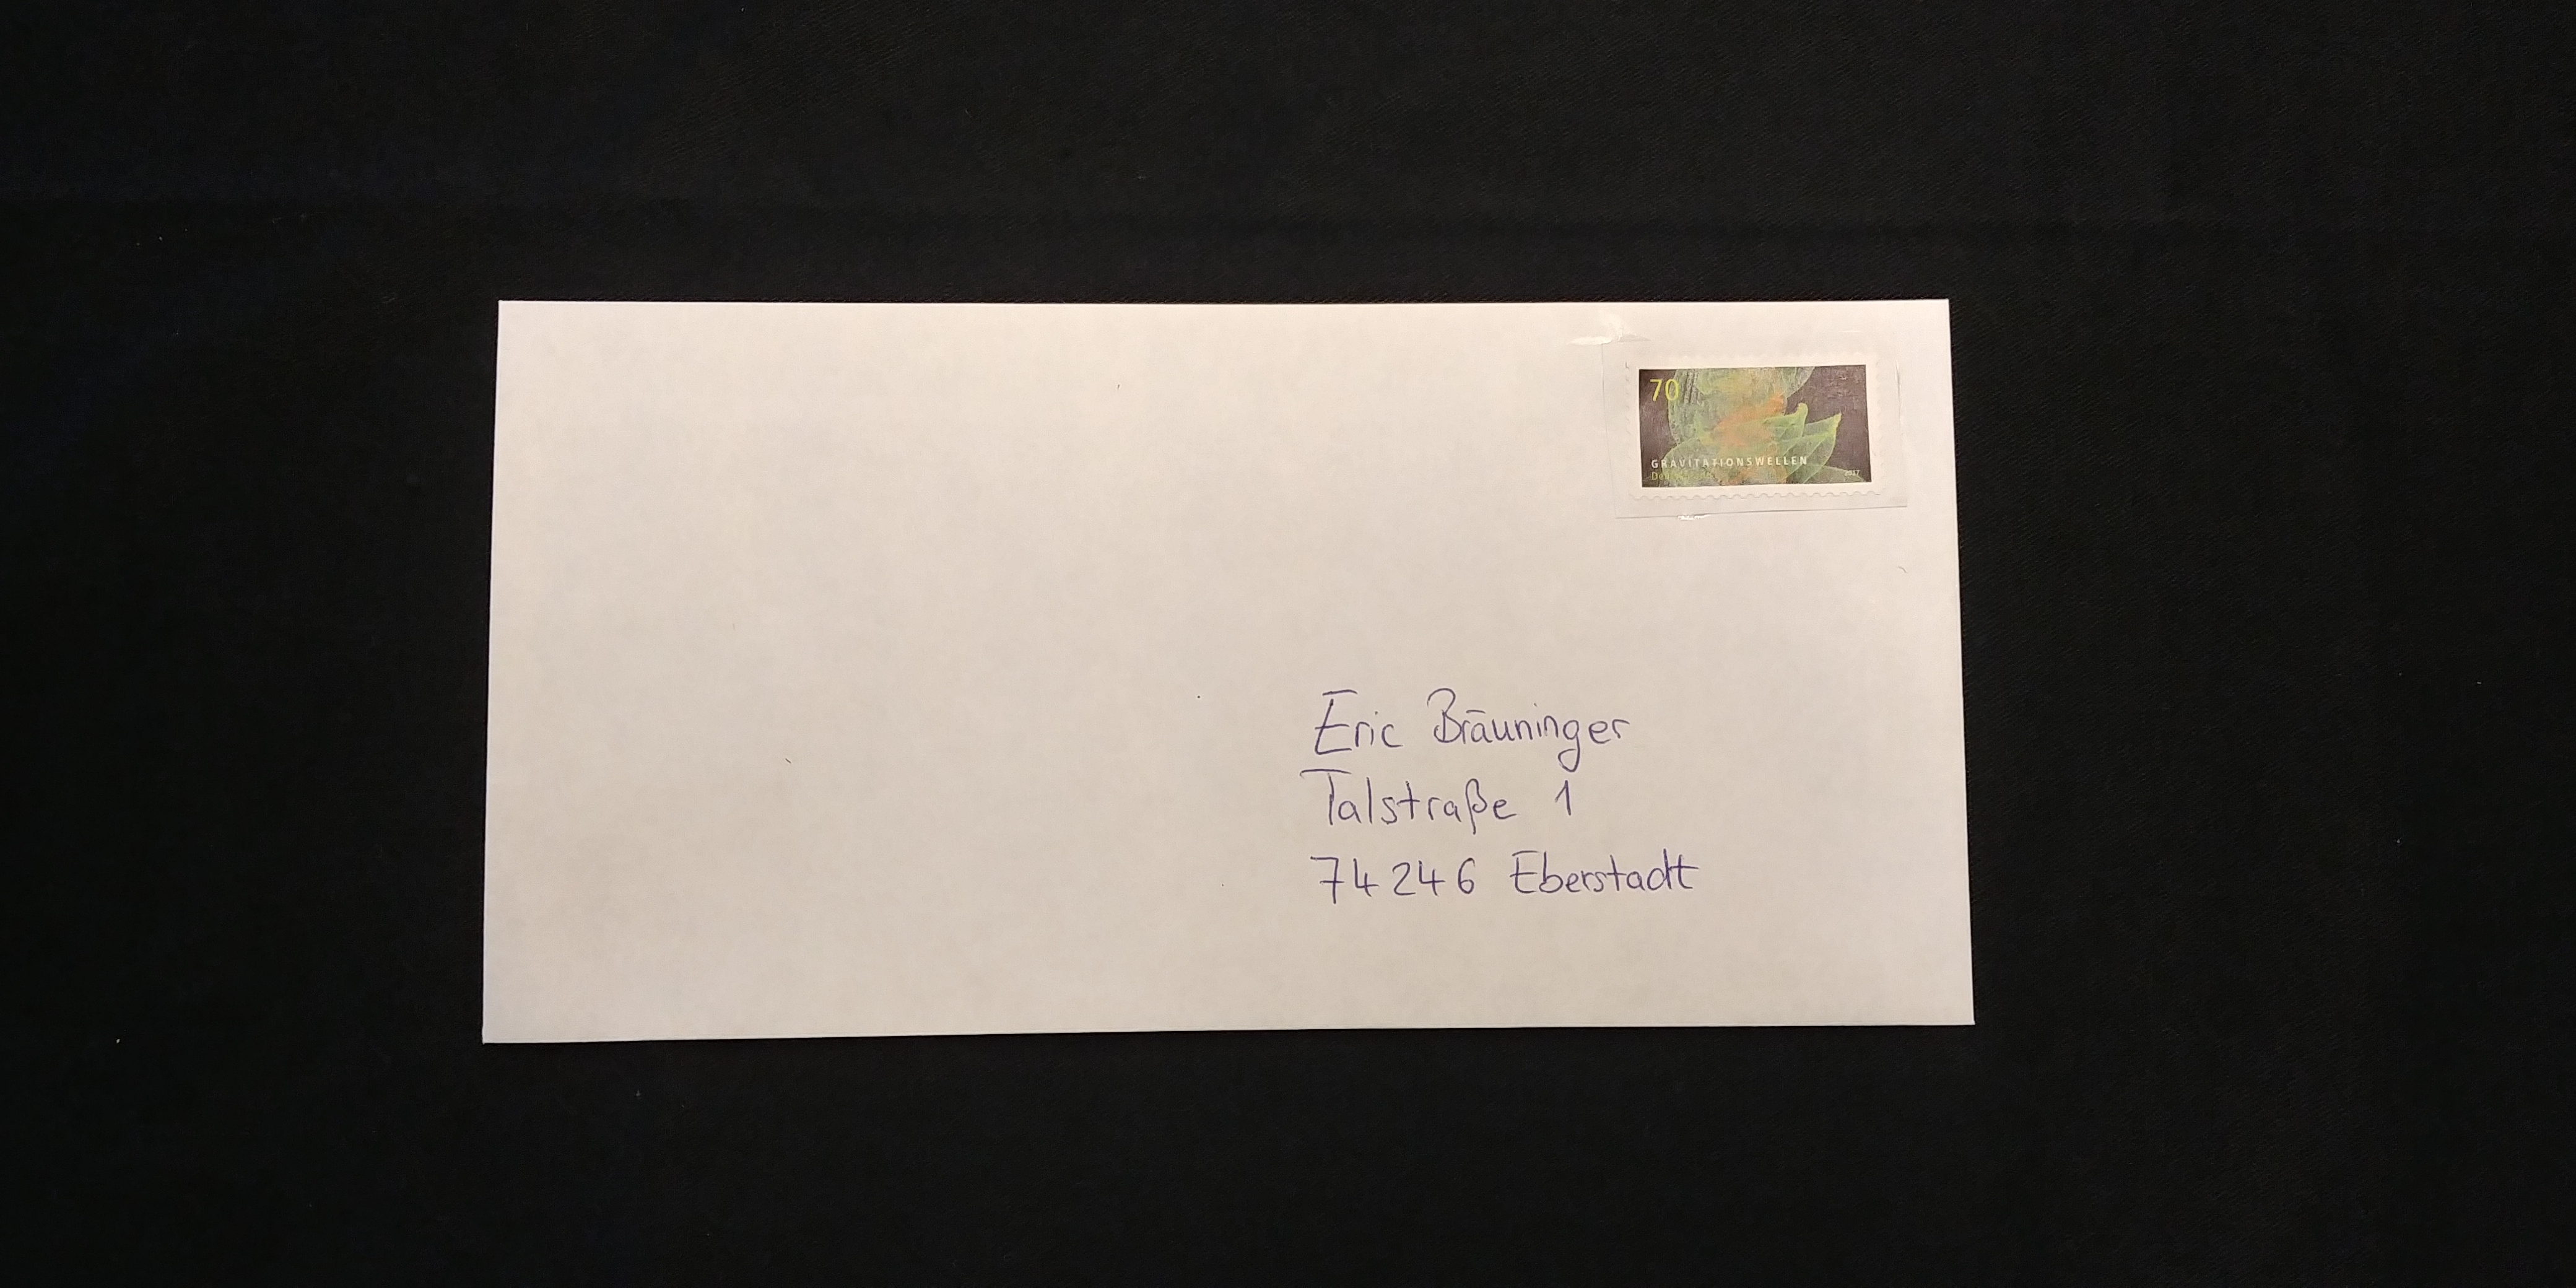 70
GRAVITATIONSWELLEN
2017
Eric Bräuninger
Talstraße 1
74246 Eberstadt